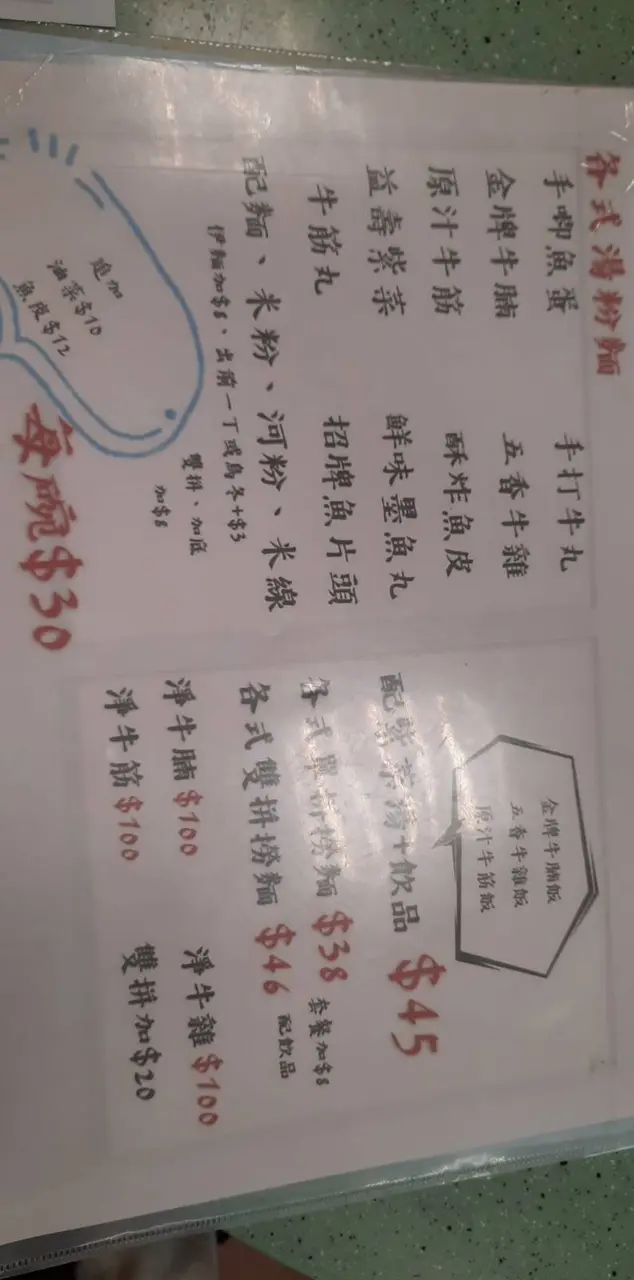 各式湯粉麵
手唧魚蛋 手打牛丸
金牌牛腩 五香牛雜
原汁牛筋 酥炸魚皮
益壽紫菜 鮮味墨魚丸
牛筋丸 招牌魚片頭
配麵、米粉、河粉、米線
伊麵加$8、出前一丁或烏冬+$3
雙拼、加底
加$8
追加
油菜$10
魚皮$12
每碗$30
金牌牛腩飯
五香牛雜飯
原汁牛筋飯
配紫菜湯+飲品 $45
各式單拼撈麵 $38 套餐加$8
各式雙拼撈麵 $46 配飲品
淨牛腩$100 淨牛雜$100
淨牛筋$100 雙拼加$20